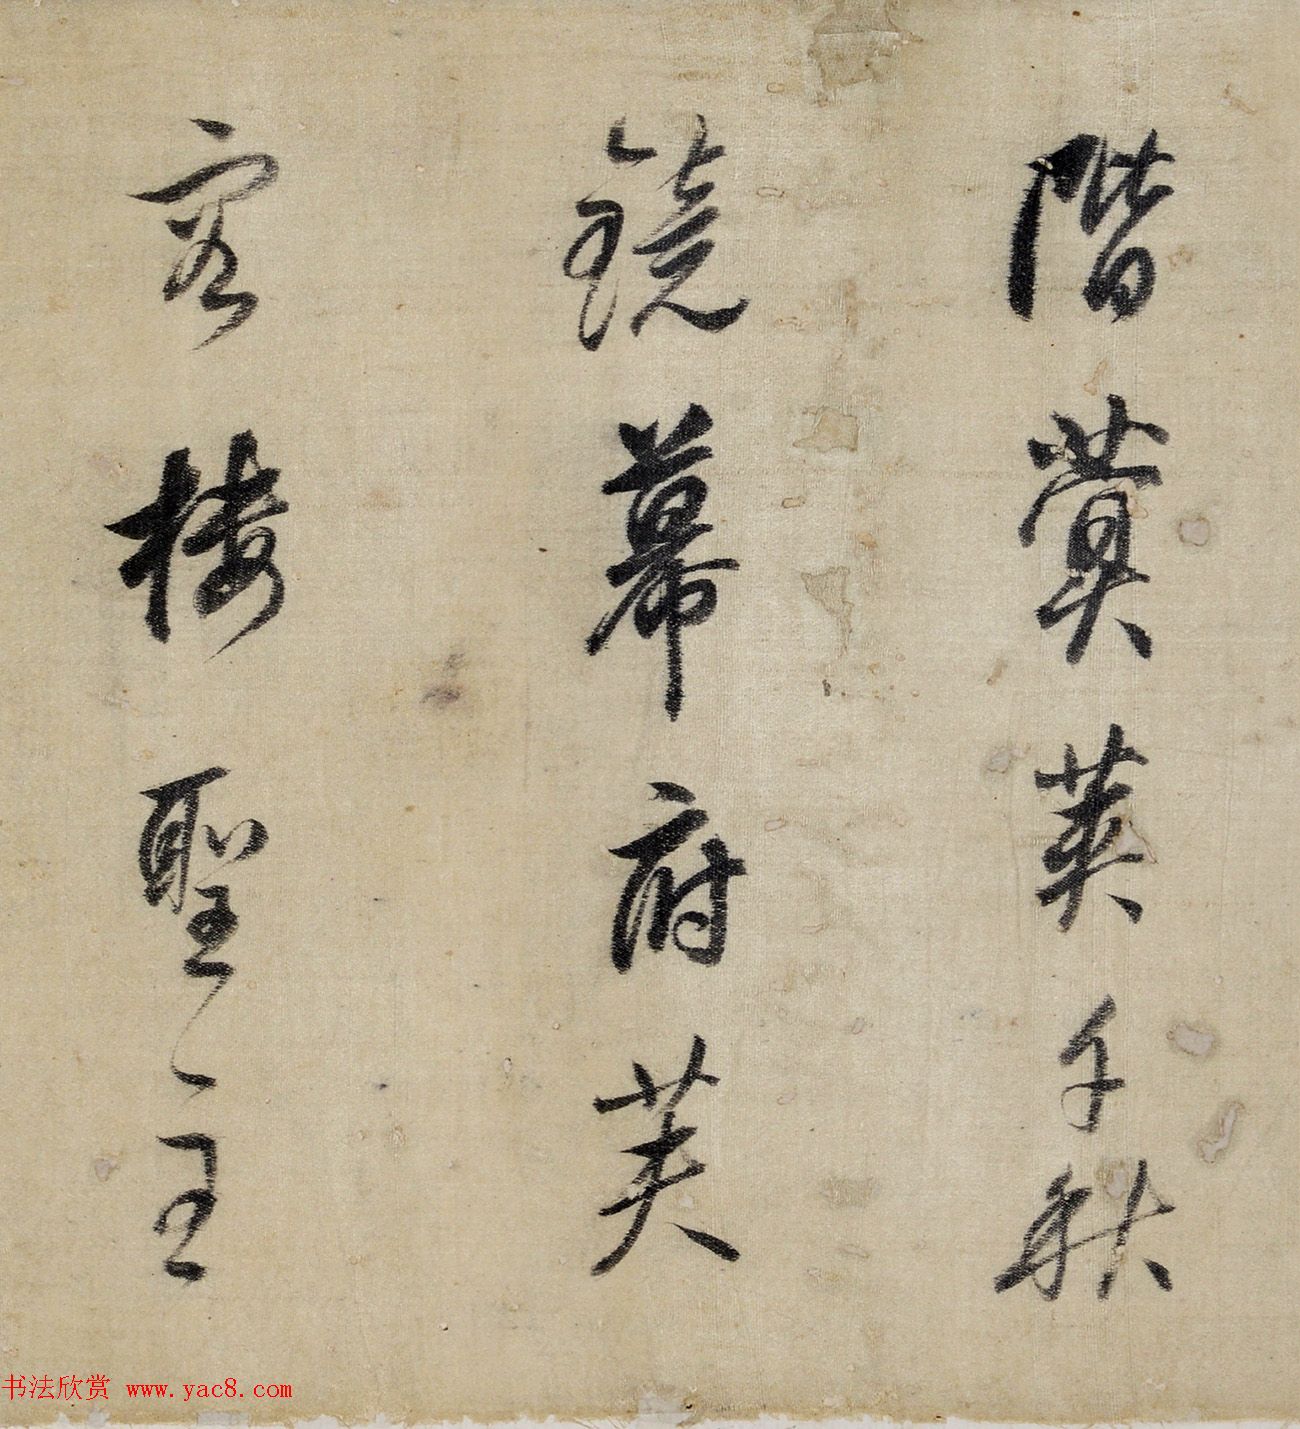 階蓂荚千秋
鏡幕府芙
蓉樓聖主
书法欣赏 www.yac8.com